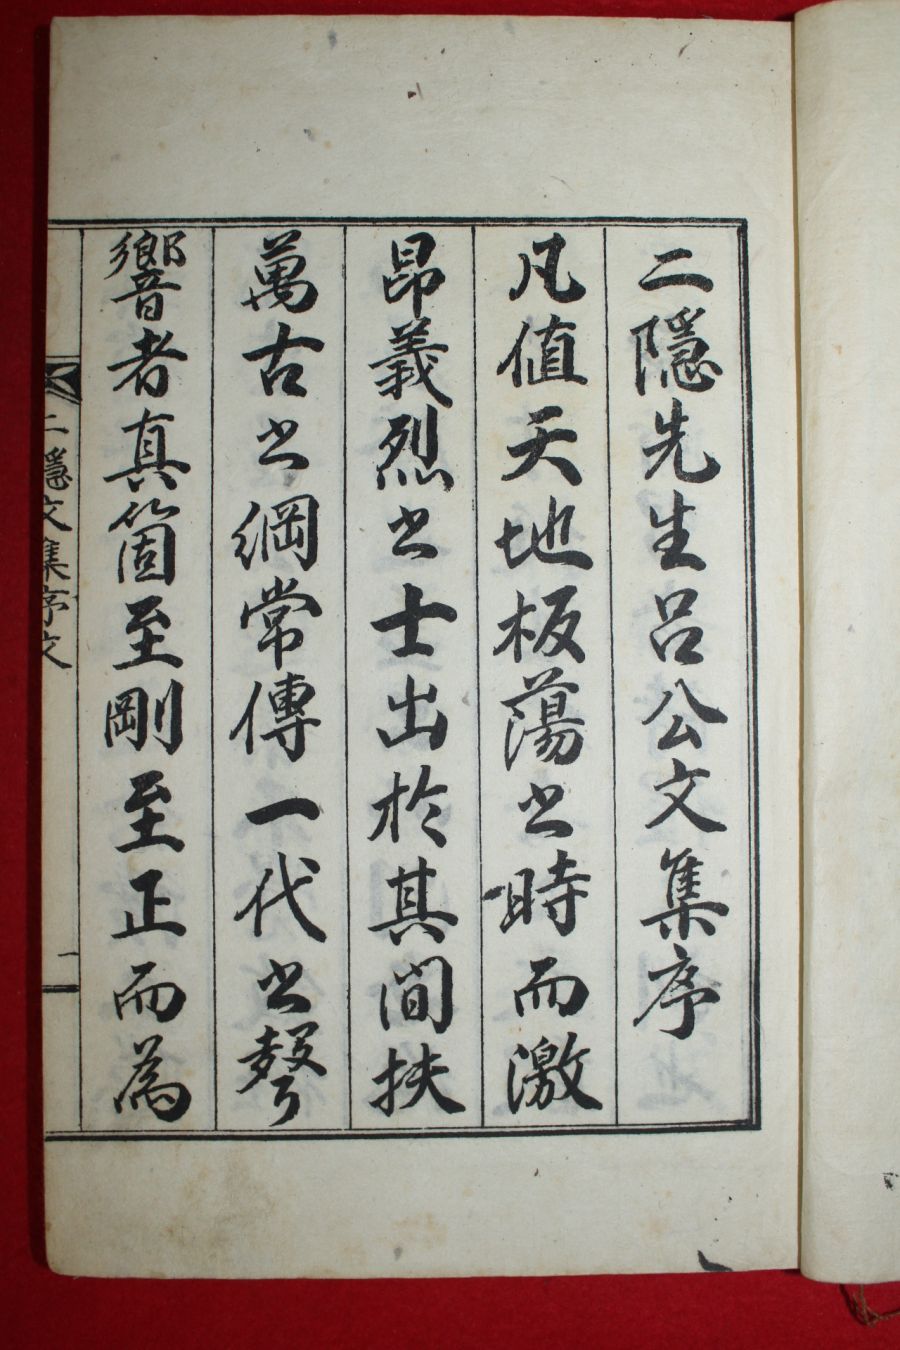 二隱先生呂公文集序
凡値天地板蕩之時而激
昂義烈之士出於其間扶
萬古之綱常傳一代之聲
響者真箇至剛至正而為
二隱文集序文
一